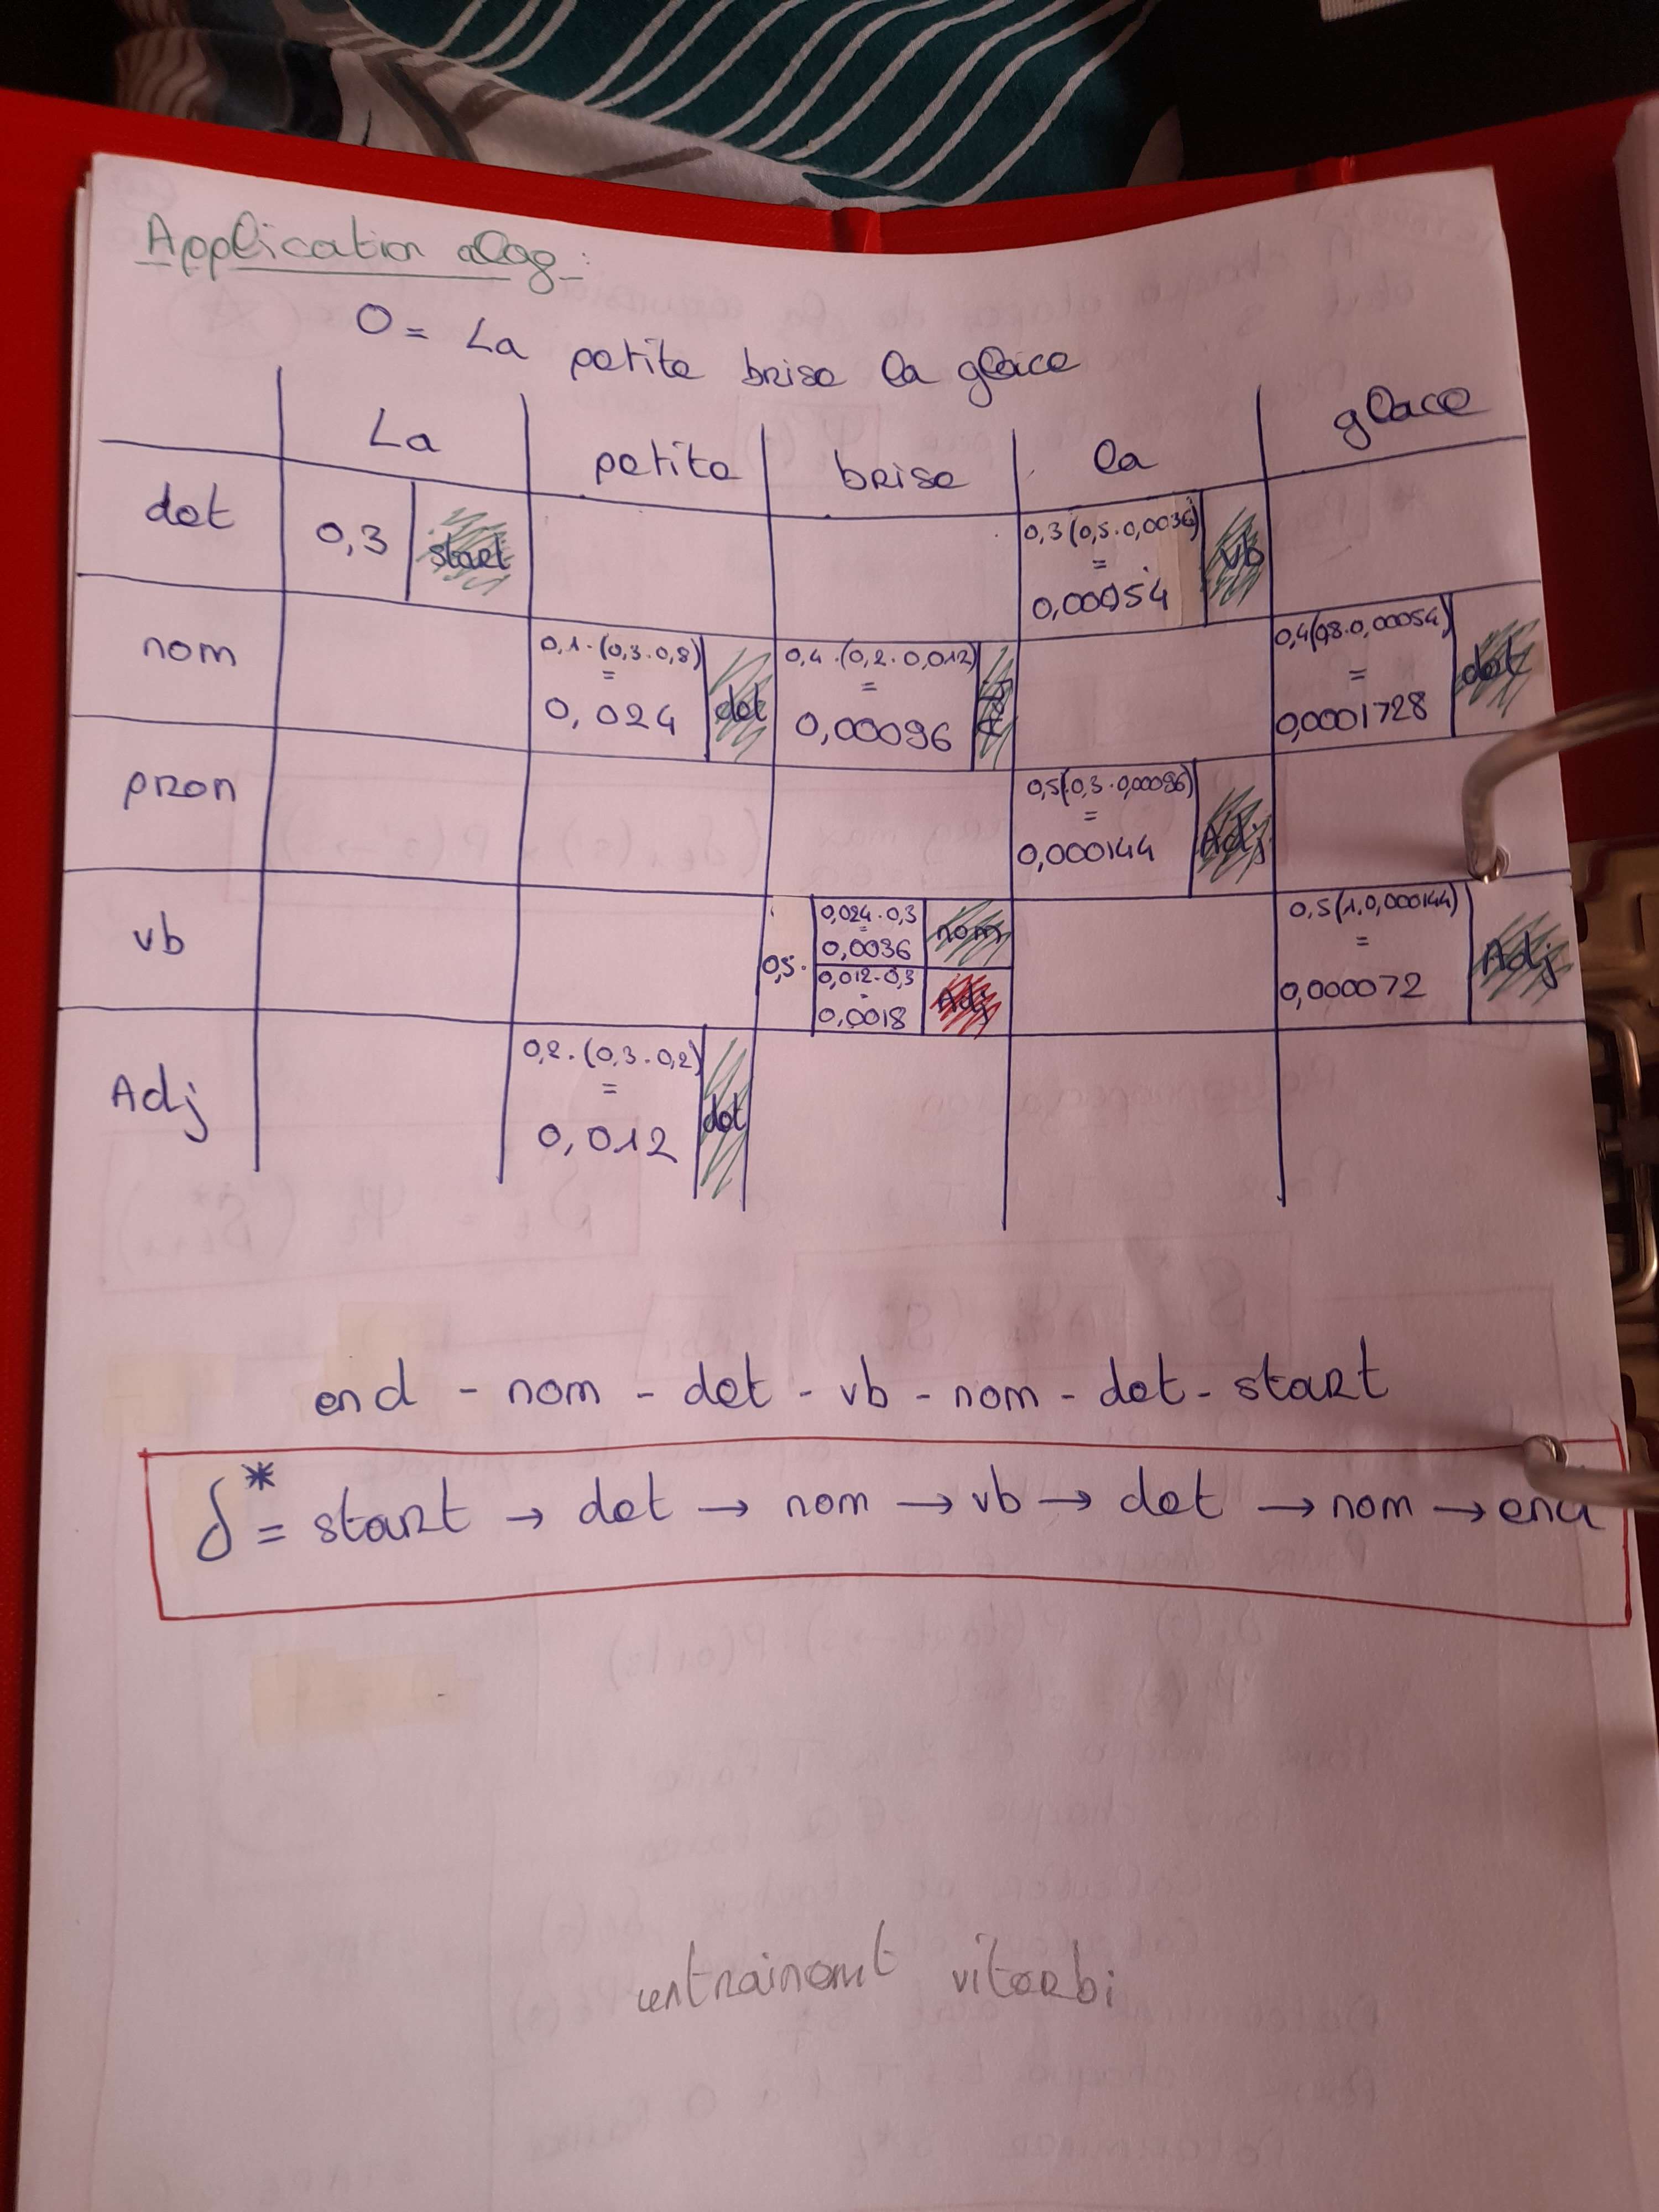 Application algo:
O = La petite brise la glace
La petite brise la glace
det 0,3 start 0,3(0,5.0,0036) = 0,00054 vb
nom 0,1.(0,3.0,8) = 0,024 det 0,4.(0,2.0,012) = 0,00096 Adj 0,4(0,8.0,00054) = 0,0001728 det
pron 0,5(0,3.0,00096) = 0,000144 Adj
vb 0,5. 0,024.0,3 = 0,0036 nom 0,5(1.0,000144) = 0,000072 Adj
0,012.0,3 = 0,0018 Adj
Adj 0,2.(0,3.0,2) = 0,012 det
end - nom - det - vb - nom - det - start
δ* = start → det → nom → vb → det → nom → end
entrainemt viterbi